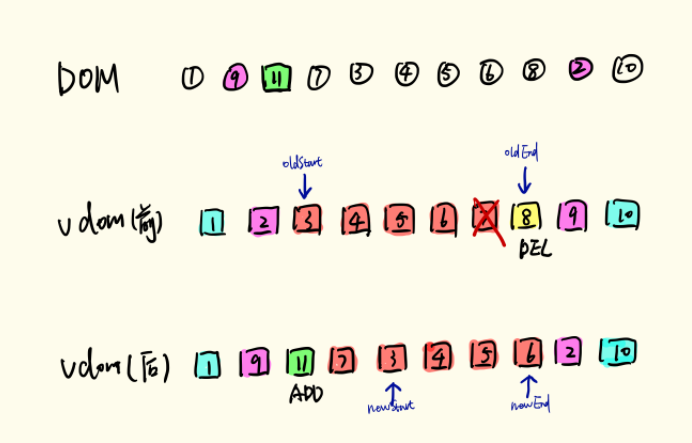 DOM ① ⑨ 11 ⑦ ③ ④ ⑤ ⑥ ⑧ ② ⑩
oldStart oldEnd
vdom(前) 1 2 3 4 5 6 7 8 9 10
DEL
vdom(后) 1 9 11 7 3 4 5 6 2 10
ADD
newStart newEnd